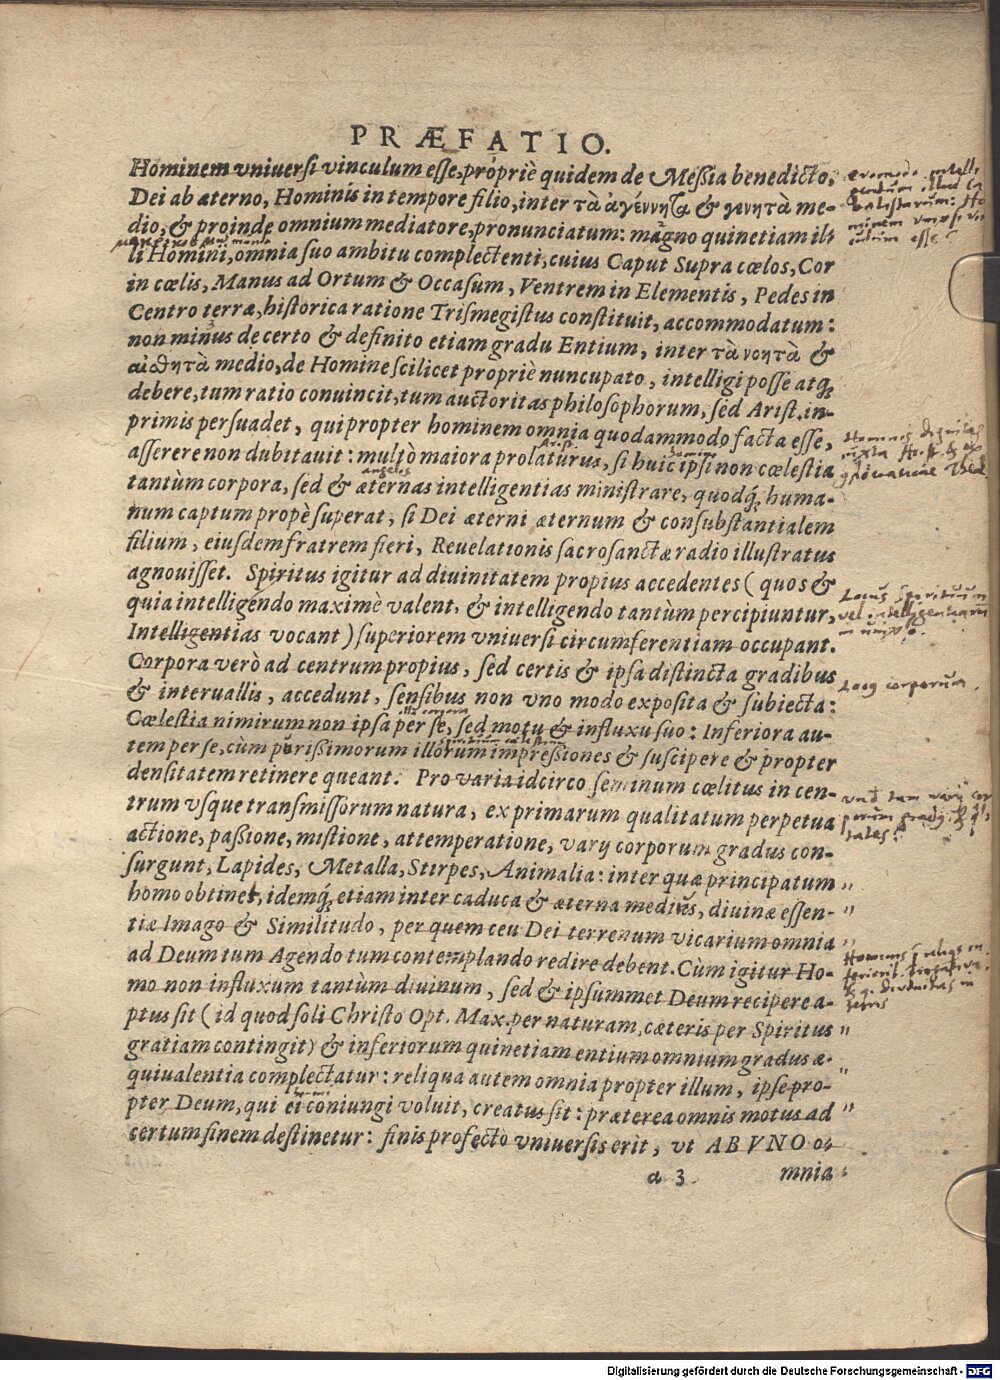 PRÆFATIO.
Hominem vniuersi vinculum esse, propriè quidem de Meßia benedicto,
Dei ab æterno, Hominis in tempore filio, inter τὰ ἀγέννητα & γενητὰ me-
dio, & proinde omnium mediatore, pronunciatum: magno quinetiam il-
li Homini, omnia suo ambitu complectenti, cuius Caput Supra cœlos, Cor
in cœlis, Manus ad Ortum & Occasum, Ventrem in Elementis, Pedes in
Centro terræ, historica ratione Trismegistus constituit, accommodatum:
non minus de certo & definito etiam gradu Entium, inter τὰ νοητὰ &
αἰσθητὰ medio, de Homine scilicet propriè nuncupato, intelligi posse atq́;
debere, tum ratio conuincit, tum auctoritas philosophorum, sed Arist. in-
primis persuadet, qui propter hominem omnia quodammodo facta esse,
asserere non dubitauit: multò maiora prolaturus, si huic ipsi non cœlestia
tantùm corpora, sed & æternas intelligentias ministrare, quodq́; huma-
num captum propè superat, si Dei æterni æternum & consubstantialem
filium, eiusdem fratrem fieri, Reuelationis sacrosanctæ radio illustratus
agnouisset. Spiritus igitur ad diuinitatem propius accedentes (quos &
quia intelligendo maximè valent, & intelligendo tantùm percipiuntur,
Intelligentias vocant) superiorem vniuersi circumferentiam occupant.
Corpora verò ad centrum propius, sed certis & ipsa distincta gradibus
& interuallis, accedunt, sensibus non vno modo exposita & subiecta:
Cœlestia nimirum non ipsa per se, sed motu & influxu suo: Inferiora au-
tem per se, cùm purißimorum illorum impreßiones & suscipere & propter
densitatem retinere queant. Pro varia idcirco seminum cœlitus in cen-
trum vsque transmissorum natura, ex primarum qualitatum perpetua
actione, paßione, mistione, attemperatione, varij corporum gradus con-
surgunt, Lapides, Metalla, Stirpes, Animalia: inter quæ principatum
homo obtinet, idemq́; etiam inter caduca & æterna medius, diuinæ essen-
tiæ Imago & Similitudo, per quem ceu Dei terrenum vicarium omnia
ad Deum tum Agendo tum contemplando redire debent. Cùm igitur Ho-
mo non influxum tantùm diuinum, sed & ipsummet Deum recipere a-
ptus sit (id quod soli Christo Opt. Max. per naturam, cæteris per Spiritus
gratiam contingit) & inferiorum quinetiam entium omnium gradus æ-
quiualentia complectatur: reliqua autem omnia propter illum, ipse pro-
pter Deum, qui ei coniungi voluit, creatus sit: præterea omnis motus ad
certum finem destinetur: finis profectò vniuersis erit, vt AB VNO o-
a 3
mnia
Arist.
homini
angelos
Locus Spirituum
vel intelligentiarum
Locus corporum.